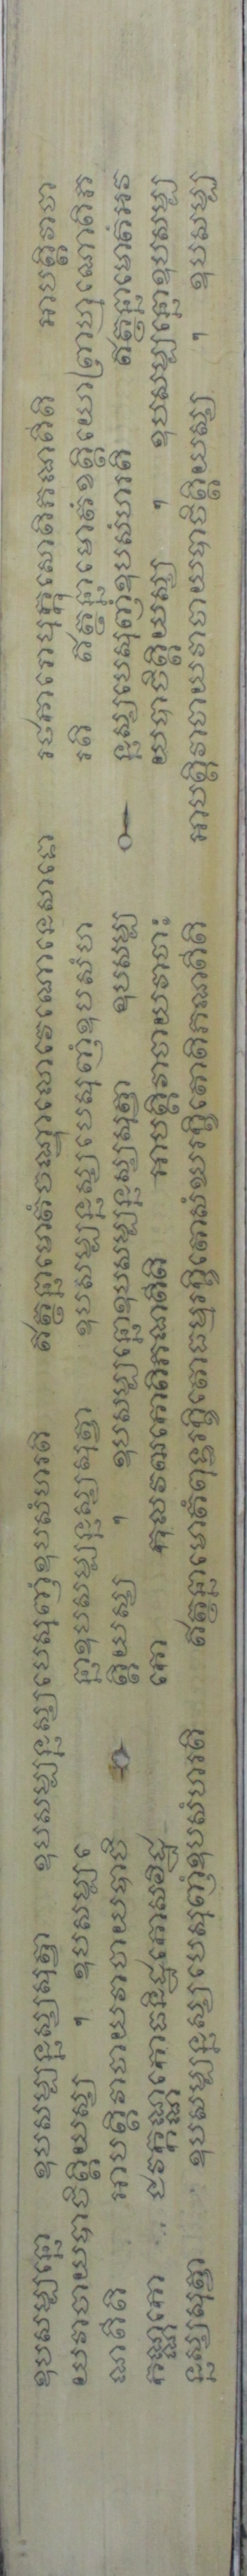 ឧបសម្បន្នោ ឧបសម្បន្នស្សសុត្វា ឧបសម្បន្នស្សបេសុញ្ញំឧបសំហរតិ ឥត្ថន្នាមោតំចណ្ឌាលោវេណោនេសាទោ រថការោបុក្កុសោតិភណតីតិ អាបត្តិវាចា
យវាចាយបាចិត្តិយស្ស ។ ឧបសម្បន្នោឧបសម្បន្នស្សសុត្វា ឧបសម្បន្នស្សបេសុញ្ញំឧបសំហរតិ ឥត្ថន្នាមោតំខត្តិយោព្រាហ្មណោតិភ
ណតីតិ អាបត្តិវាចាយវាចាយបាចិត្តិយស្ស ។ ឧបសម្បន្នោឧបសម្បន្នស្សសុត្វា ឧបសម្បន្នស្សបេសុញ្ញំឧបសំហរតិ ឥត្ថន្នាមោតំអវ
កណ្ណកោ ជវកណ្ណកោធនិដ្ឋកោសវិដ្ឋកោ កុលវឌ្ឍកោតិភណតីតិ អាបត្តិវាចាយវាចាយបាចិត្តិយស្ស ។ ឧបសម្បន្នោឧបសម្ប
ន្នស្សសុត្វា ឧបសម្បន្នស្សបេសុញ្ញំឧបសំហរតិ ឥត្ថន្នាមោតំពុទ្ធរក្ខិតោធម្មរក្ខិតោសំឃរក្ខិតោតិភណតីតិ អាបត្តិវាចាយវាចាយបាចិត្តិយស្ស ។ ឧបសម្ប